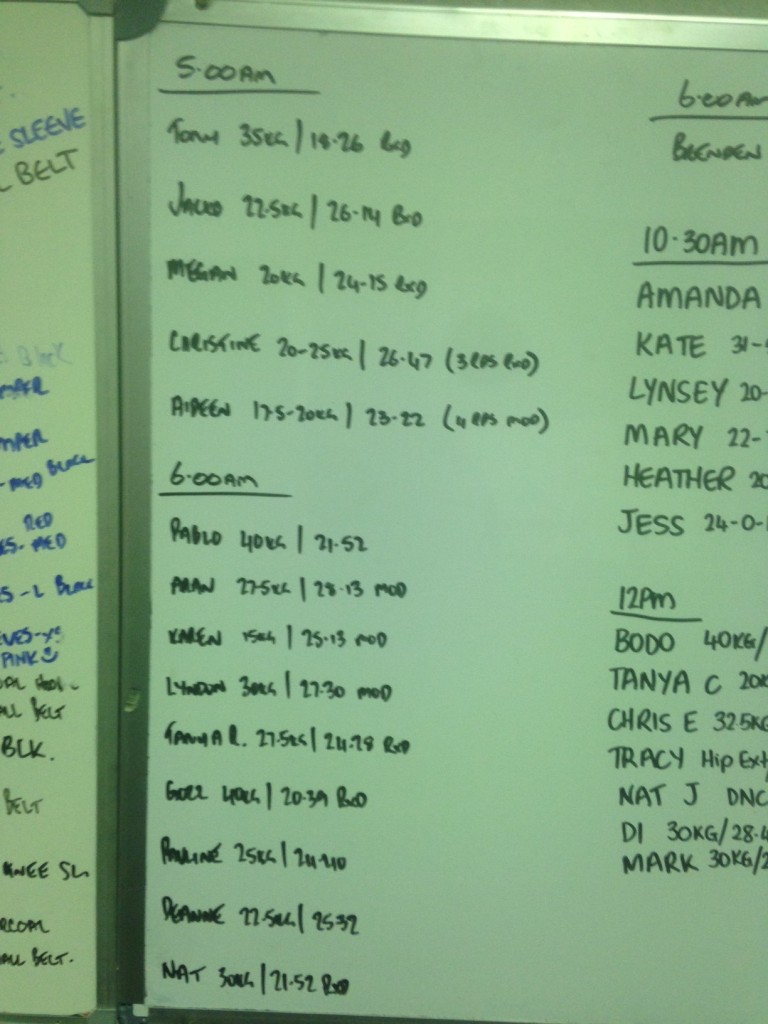 SLEEVE
BELT
BLACK
RED
PINK
BELT
BLK.
BELT
KNEE
BELT.
5:00AM
TONY 35KG | 18-26 RXD
JACKO 22.5KG | 26-14 RXD
MEGAN 20KG | 24-15 RXD
CHRISTINE 20-25KG | 26-47 (3 RDS RXD)
AIDEEN 17.5-20KG | 23-22 (4 RDS MOD)
6:00AM
PABLO 40KG | 21-52
ARAN 27.5KG | 28-13 MOD
KAREN 15KG | 25-13 MOD
LYNDON 30KG | 27-30 MOD
TANYA R. 27.5KG | 24-28 RXD
40KG | 20-39 RXD
PAULINE 25KG | 24-40
DEANNE 22.5KG | 25-32
NAT 30KG | 21-52 RXD
6:00AM
BRENDEN
10-30AM
AMANDA
KATE 31-
LYNSEY 20-
MARY 22-
HEATHER 20
JESS 24-0-
12PM
BODO 40KG/
TANYA C 20K
CHRIS E 32.5KG
TRACY Hip Ext
NAT J DNC
DI 30KG/28-4
MARK 30KG/2